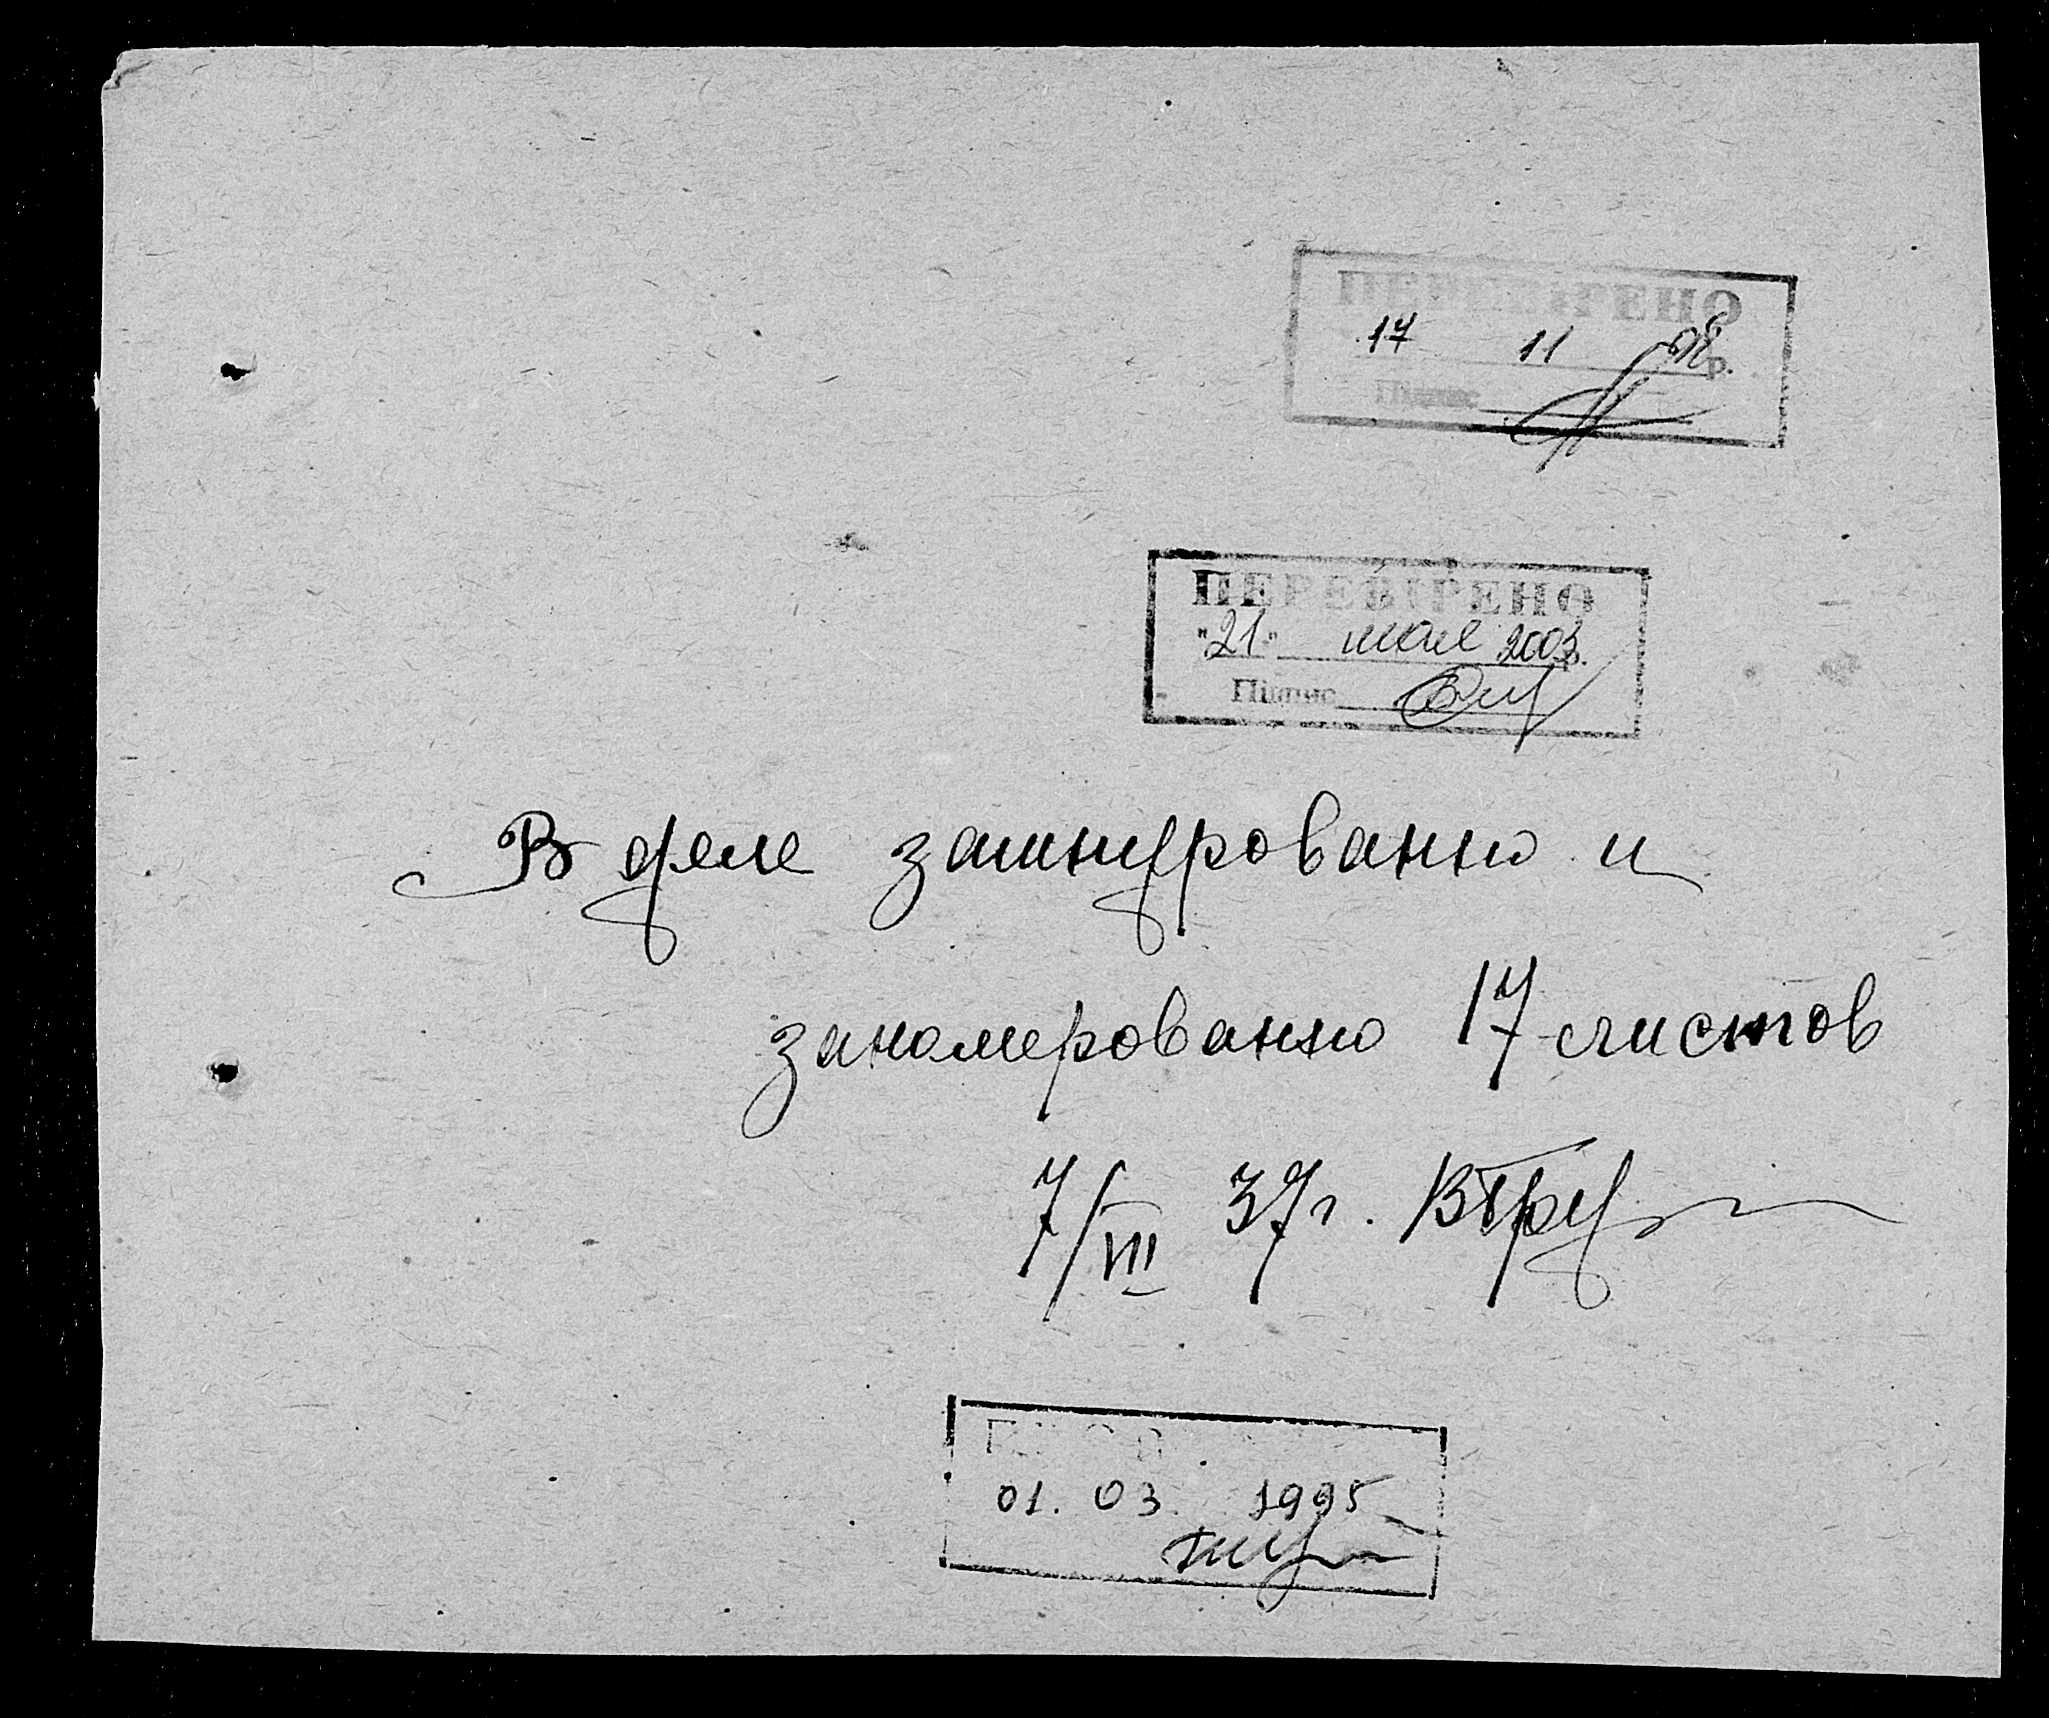 ПЕРЕВІРЕНО
17 11 98 р.
Підпис
ПЕРЕВІРЕНО
"21" мая 2003 р.
Підпис
В деле зашнурованно и
заномерованно 17 листов
7/VIII 37г.
01. 03 1995